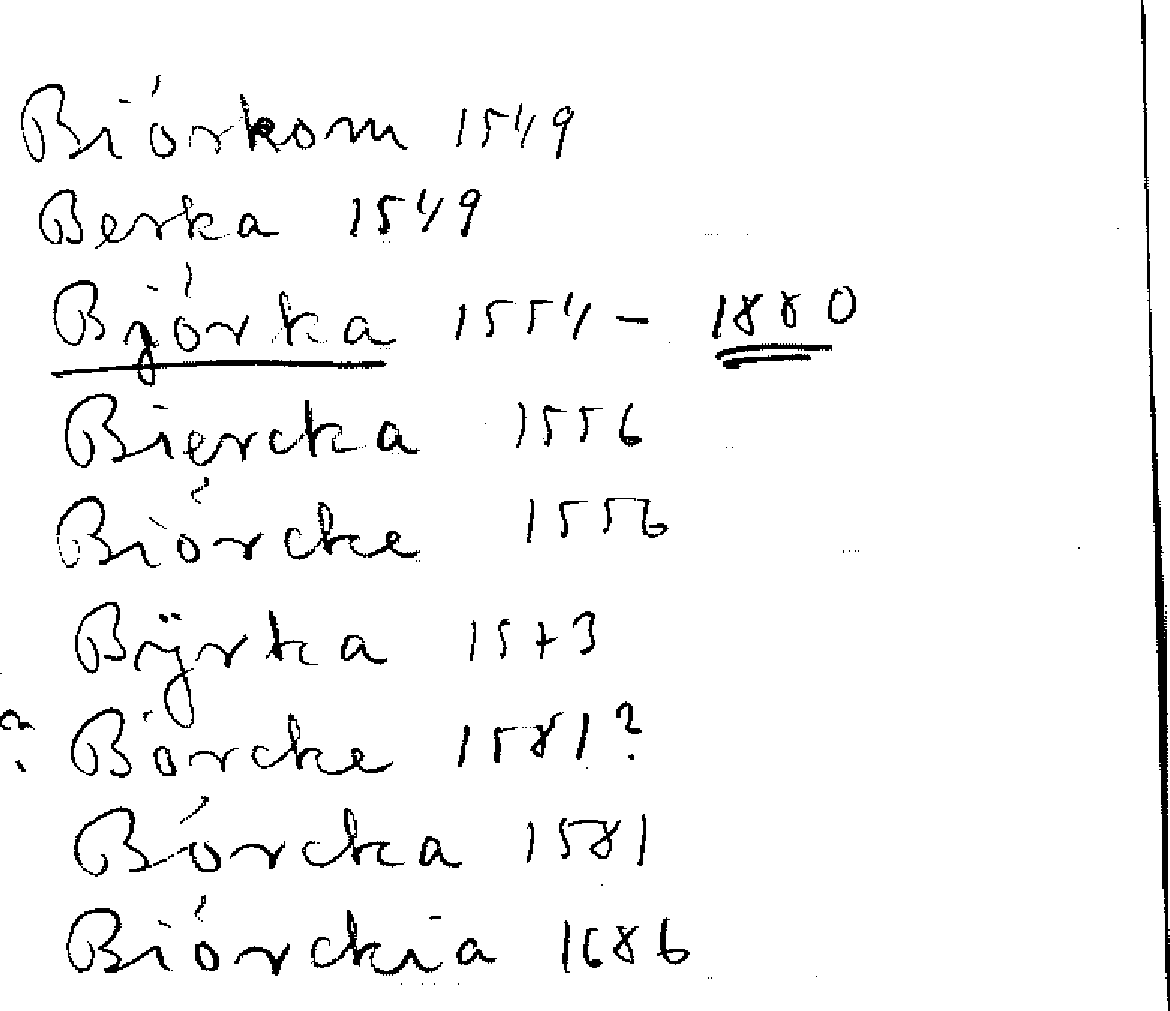 Biórkom 1549
Berka 1549
Bjórka 1554 - 1880
Biercka 1556
Biórcke 1556
Bÿrka 1573
Börcke 1581?
Bórcka 1581
Biórckia 1686